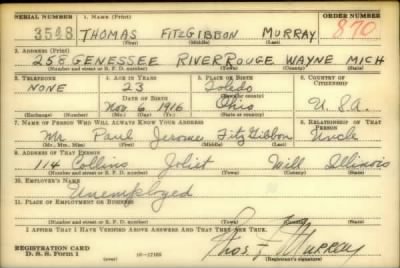 SERIAL NUMBER 1. NAME (Print) ORDER NUMBER
3548 THOMAS FITZGIBBON MURRAY 870
(First) (Middle) (Last)
2. ADDRESS (Print)
258 GENESSEE RIVER ROUGE WAYNE MICH
(Number and street or R. F. D. number) (Town) (County) (State)
3. TELEPHONE 4. AGE IN YEARS 5. PLACE OF BIRTH 6. COUNTRY OF CITIZENSHIP
NONE 23 Toledo
DATE OF BIRTH (Town or county)
Nov 6 1916 Ohio U.S.A.
(Exchange) (Number) (Mo.) (Day) (Yr.) (State or country)
7. NAME OF PERSON WHO WILL ALWAYS KNOW YOUR ADDRESS 8. RELATIONSHIP OF THAT PERSON
Mr. Paul Jerome FitzGibbon Uncle
(Mr., Mrs., Miss) (First) (Middle) (Last)
9. ADDRESS OF THAT PERSON
114 Collins Joliet Will Illinois
(Number and street or R. F. D. number) (Town) (County) (State)
10. EMPLOYER'S NAME
Unemployed
11. PLACE OF EMPLOYMENT OR BUSINESS
(Number and street or R. F. D. number) (Town) (County) (State)
I AFFIRM THAT I HAVE VERIFIED ABOVE ANSWERS AND THAT THEY ARE TRUE.
REGISTRATION CARD
D. S. S. Form 1 Thos F. Murray
(Registrant's signature)